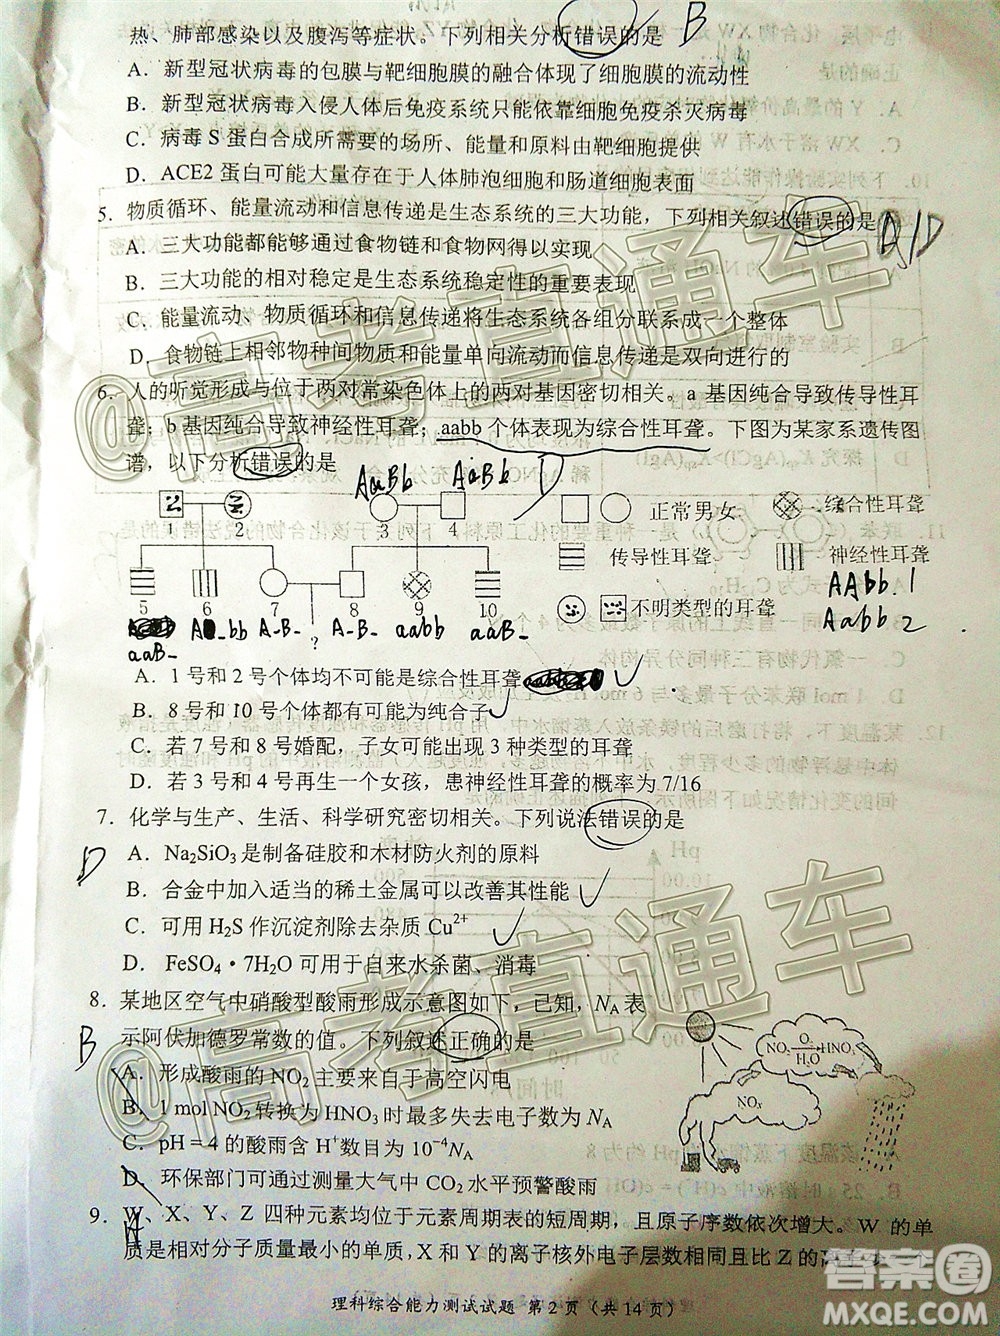 热、肺部感染以及腹泻等症状。下列相关分析错误的是 B
A．新型冠状病毒的包膜与靶细胞膜的融合体现了细胞膜的流动性
B．新型冠状病毒入侵人体后免疫系统只能依靠细胞免疫杀灭病毒
C．病毒 S 蛋白合成所需要的场所、能量和原料由靶细胞提供
D．ACE2 蛋白可能大量存在于人体肺泡细胞和肠道细胞表面
5．物质循环、能量流动和信息传递是生态系统的三大功能，下列相关叙述错误的是
A．三大功能都能够通过食物链和食物网得以实现
B．三大功能的相对稳定是生态系统稳定性的重要表现
C．能量流动、物质循环和信息传递将生态系统各组分联系成一个整体
D．食物链上相邻物种间物质和能量单向流动而信息传递是双向进行的
6．人的听觉形成与位于两对常染色体上的两对基因密切相关。a 基因纯合导致传导性耳
聋；b 基因纯合导致神经性耳聋；aabb 个体表现为综合性耳聋。下图为某家系遗传图
谱，以下分析错误的是 D
AaBb AaBb
1 2 3 4
正常男女 综合性耳聋
传导性耳聋 神经性耳聋
不明类型的耳聋
AAbb 1
Aabb 2
5 6 7 8 9 10
?
aaB_ A_bb A-B- A-B- aabb aaB_
A．1 号和 2 号个体均不可能是综合性耳聋
B．8 号和 10 号个体都有可能为纯合子
C．若 7 号和 8 号婚配，子女可能出现 3 种类型的耳聋
D．若 3 号和 4 号再生一个女孩，患神经性耳聋的概率为 7/16
7．化学与生产、生活、科学研究密切相关。下列说法错误的是
D
A．Na₂SiO₃ 是制备硅胶和木材防火剂的原料
B．合金中加入适当的稀土金属可以改善其性能
C．可用 H₂S 作沉淀剂除去杂质 Cu²⁺
D．FeSO₄・7H₂O 可用于自来水杀菌、消毒
8．某地区空气中硝酸型酸雨形成示意图如下，已知，Nᴀ 表
示阿伏加德罗常数的值。下列叙述正确的是
B
A．形成酸雨的 NO₂ 主要来自于高空闪电
B．1 mol NO₂ 转换为 HNO₃ 时最多失去电子数为 Nᴀ
C．pH = 4 的酸雨含 H⁺数目为 10⁻⁴Nᴀ
D．环保部门可通过测量大气中 CO₂ 水平预警酸雨
NO₂ O₂ H₂O HNO₃
NOₓ
9．W、X、Y、Z 四种元素均位于元素周期表的短周期，且原子序数依次增大。W 的单
质是相对分子质量最小的单质，X 和 Y 的离子核外电子层数相同且比 Z 的
理科综合能力测试试题 第 2 页（共 14 页）
@高考直通车
@高考直通车
答案圈
MXQE.COM